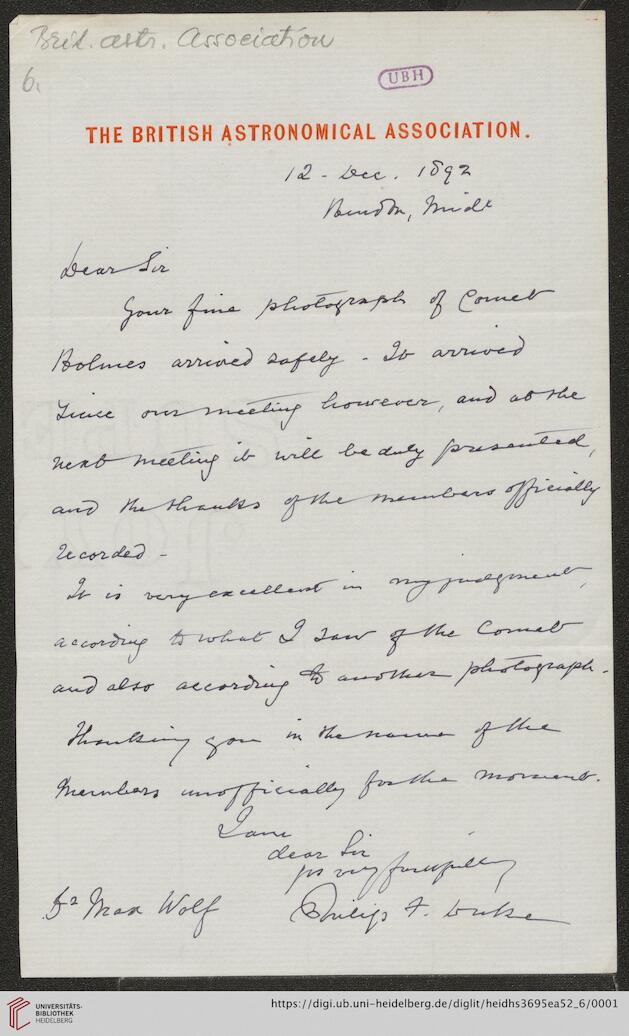 Brit. astr. Association
6.
UBH
THE BRITISH ASTRONOMICAL ASSOCIATION.
12 - Dec. 1892
Hendon, Midx
Dear Sir
Your fine photograph of Comet
Holmes arrived safely - It arrived
since our meeting however, and at the
next meeting it will be duly presented,
and the thanks of the members officially
recorded -
It is very excellent in my judgment,
according to what I saw of the Comet
and also according to another photograph.
Thanking you in the name of the
Members unofficially for the moment.
I am
dear Sir
yrs very faithfully
Dr Max Wolf
Philip F. Duke
UNIVERSITÄTS-
BIBLIOTHEK
HEIDELBERG
https://digi.ub.uni-heidelberg.de/diglit/heidhs3695ea52_6/0001